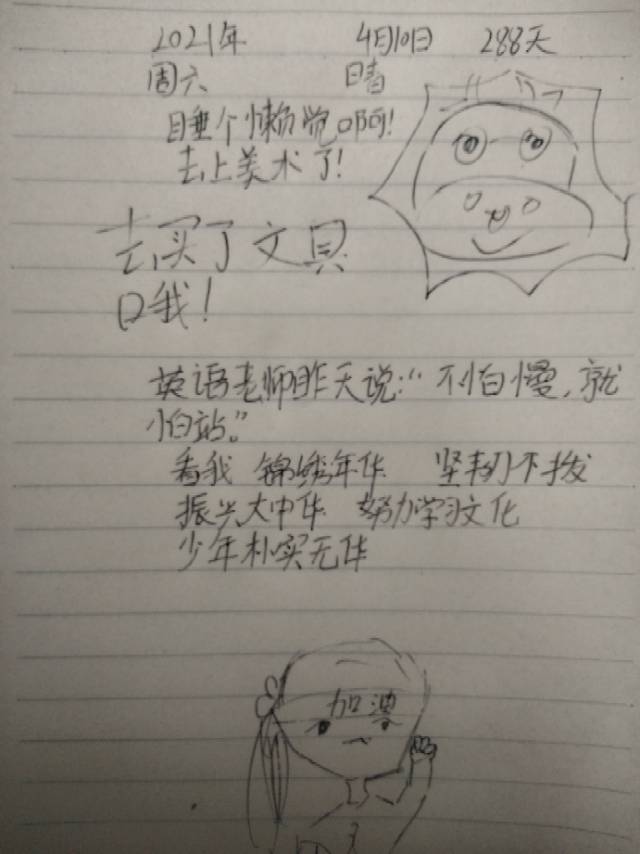 2021年 4月10日 288天
周六 晴
睡个懒觉啊!
去上美术了!
去买了文具
口我!
英语老师昨天说:“不怕慢,就
怕站。”
看我 锦绣年华 坚韧不拔
振兴大中华 努力学习文化
少年朴实无华
加油